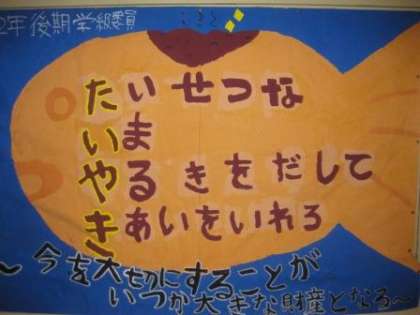 2年後期学級委員
たいせつな
いま
やるきをだして
きあいをいれろ
～今を大切にすることが
いつか大きな財産となる～